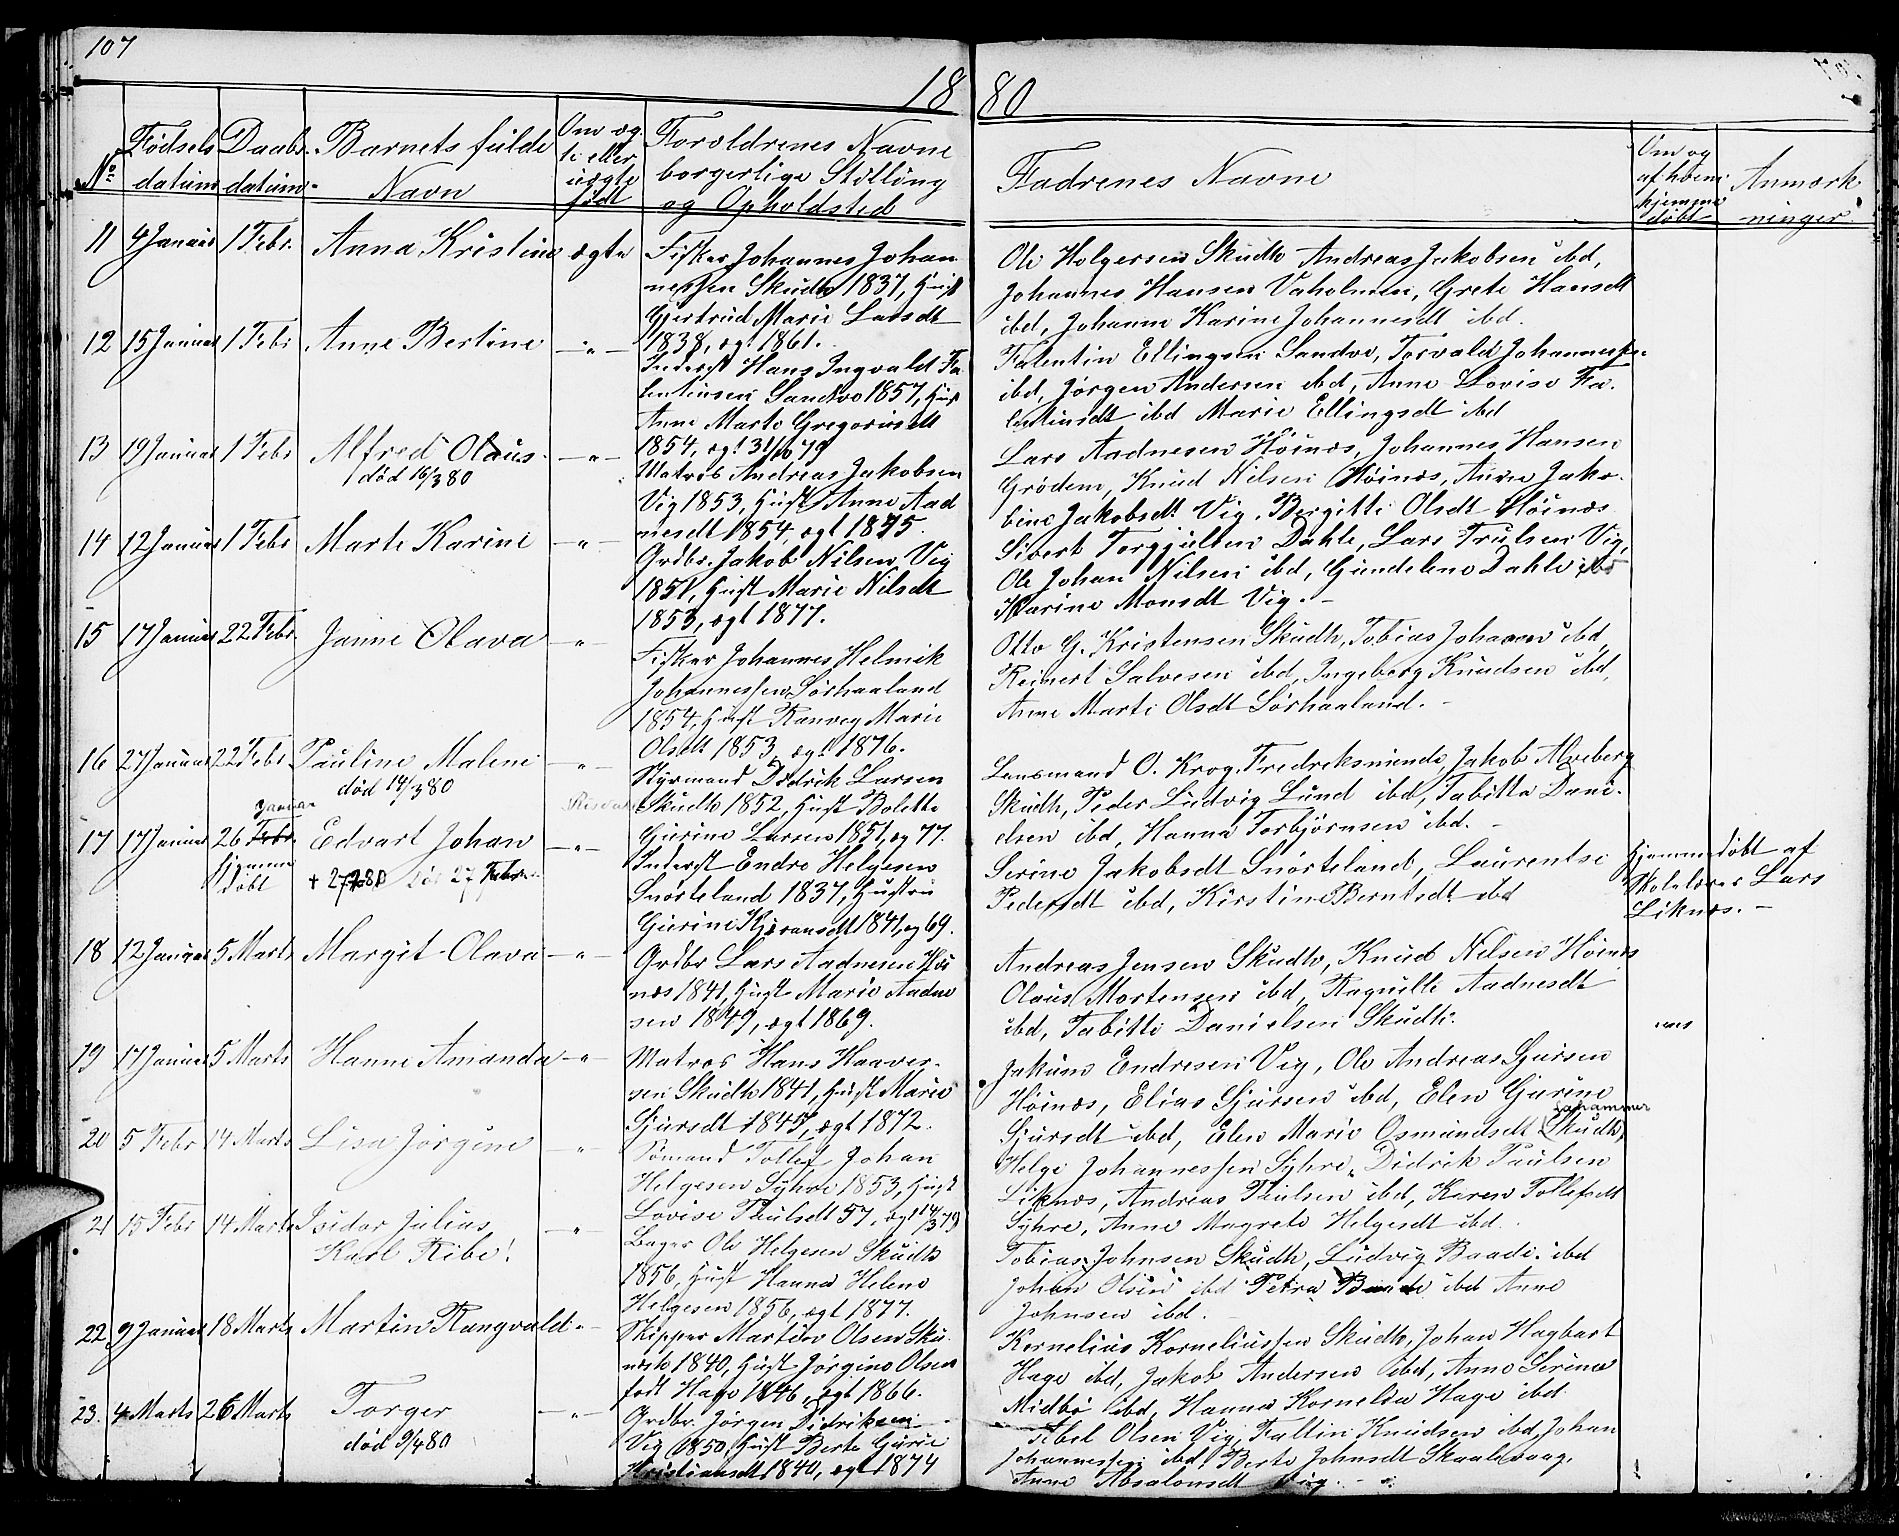 107
18 80
No Fødsels datum Daabs datum Barnets fulde Navn Om ægte eller uægte født Forældrenes Navne borgerlige Stilling og Opholdsted Fadrenes Navne Om og af hvem hjemmedøbt Anmærkninger
11 4 Januar 1 Febr. Anna Kristine ægte Fisker Johannes Johan
nessen Skudh 1837, Hust
Gjertrud Marie Larsdt
1838, ægt 1861.
Ole Holgersen Skudh Andreas Jakobsen ibd,
Johannes Hansen Vaholmen, Grete Hansdt
ibd, Johanne Karine Johannesdt ibd.
12 15 Januar 1 Febr Anne Bertine —„— Inderst Hans Ingvald Fa
lentinsen Sandve 1857, Hus
Anne Marte Gregoriusdt
1854, ægt 31/10 79
Falentin Ellingsen Sandve, Torvald Johannessen
ibd, Jørgen Andersen ibd, Anne Lovise Fa.
lentinsdt ibd Marie Ellingsdt ibd
13 19 Januar 1 Febr Alfred Olaus —„—
død 16/3 80
Matros Andreas Jakobsen
Vig 1853, Hust Anne Aad
nesdt 1854, ægt 1875.
Lars Aadnesen Høinæs, Johannes Hansen
Grødem, Knud Nilsen Høinæs, Anne Jako-
bine Jakobsdt Vig. Bergitte Olsdt Høinæs
14 12 Januar 1 Febr Marte Karine —„— Grdbr. Jakob Nilsen Vig
1851, Hust Marie Nilsdt
1853, ægt 1877.
Sivert Torgjulsen Dahle, Lars Trulsen Vig,
Ole Johan Nilsen ibd, Gundeline Dahle ibd
Karine Monsdt Vig. -
15 17 Januar 22 Febr Janne Olava —„— Fisker Johannes Helmik
Johannessen Sørhaaland
1854, Hust Ranveg Marie
Olsdt 1853 ægt 1876.
Otto G. Kristensen Skudh, Tobias Johansen ibd,
Reinert Salvesen ibd, Ingeborg Knudsen ibd,
Anne Marte Olsdt Sørhaaland. -
16 27 Januar 22 Febr Pauline Malene —„—
død 14/3 80
Styrmand Didrik Larsen
Skudh 1852, Hust Bolette
Gurine Larsen 1851, æg 77.
Lensmand O. Krog, Fredreksminde, Jakob Alveberg
Skudh, Peder Ludvig Lund ibd, Tabitta Dani-
elsen ibd, Hanna Torbjørnsen ibd. -
17 17 Januar 26 Febr Januar Hjemme døbt Edvart Johan —„—
død 27 Febr
Inderst Endre Helgesen
Snørteland 1837, Hustru
Gurine Kjeransdt 1841, æg 69.
Serine Jakobsdt Snørteland, Laurentse
Pedersdt ibd, Kirstine Berntsdt ibd
Hjemmedøbt af
Skolelærer Lars
Liknæs. -
18 12 Januar 5 Marts Margit Olava —„— Grdbr Lars Aadnesen Høi
næs 1841, Hust Marie Aadne
sen 1849, ægt 1869.
Andreas Jensen Skudh, Knud Nilsen Høinæs
Olaus Mortensen ibd, Ragnille Aadnesdt
ibd, Tabitte Danielsen Skudh.
19 17 Januar 5 Marts Hanne Amanda —„— Matros Hans Haaver-
sen Skudh 1841, Hust Marie
Sjursdt 1845, ægt 1872.
Jakum Endresen Vig, Ole Andreas Sjursen
Høinæs, Elias Sjursen ibd, Elen Gurine
Sjursdt ibd, Elen Marie Osmundsdt Skudh,
20 5 Febr 14 Marts Lisa Jørgine —„— Sømand Tollef Johan
Helgesen Syhre 1853, Hust
Lovise Paulsdt 57, ægt 14/3 79
Helge Johannessen Syhre, Didrik Paulsen
Liknæs, Andreas Paulsen ibd, Karen Tollefsdt
Syhre, Anne Magrete Helgesdt ibd.
21 15 Febr 14 Marts Isidor Julius
Karl Ribe! —„—
Bager Ole Helgesen Skudh
1856, Hust Hanna Helene
Helgesen 1856, ægt 1877.
Tobias Johnsen Skudh, Ludvig Baade ibd
Johan Olsen ibd Petra Baade ibd Anne
Johnsen ibd.
22 9 Januar 18 Marts Martin Rangvald „- Skipper Martin Olsen Sku-
1840, Hust Jørgine Olsen
født Hage 1846, ægt 1866.
Kornelius Korneliussen Skudh, Johan Hagbart
Hage ibd, Jakob Andersen ibd, Anne Serine
Midbø ibd, Hanna Kornelia Hage ibd
23. 4 Marts 26 Marts Torger —„—
død 9/4 80
Grdbr. Jørgen Didriksen
Vig 1850, Hust Berte Gurie
Kristiansdt 1840, ægt 1874
Olsen Vig, Faltin Knudsen ibd, Johan
Johannessen ibd, Berte Johnsdt Skaalevaag,
Anne Absalonsdt Vig. -